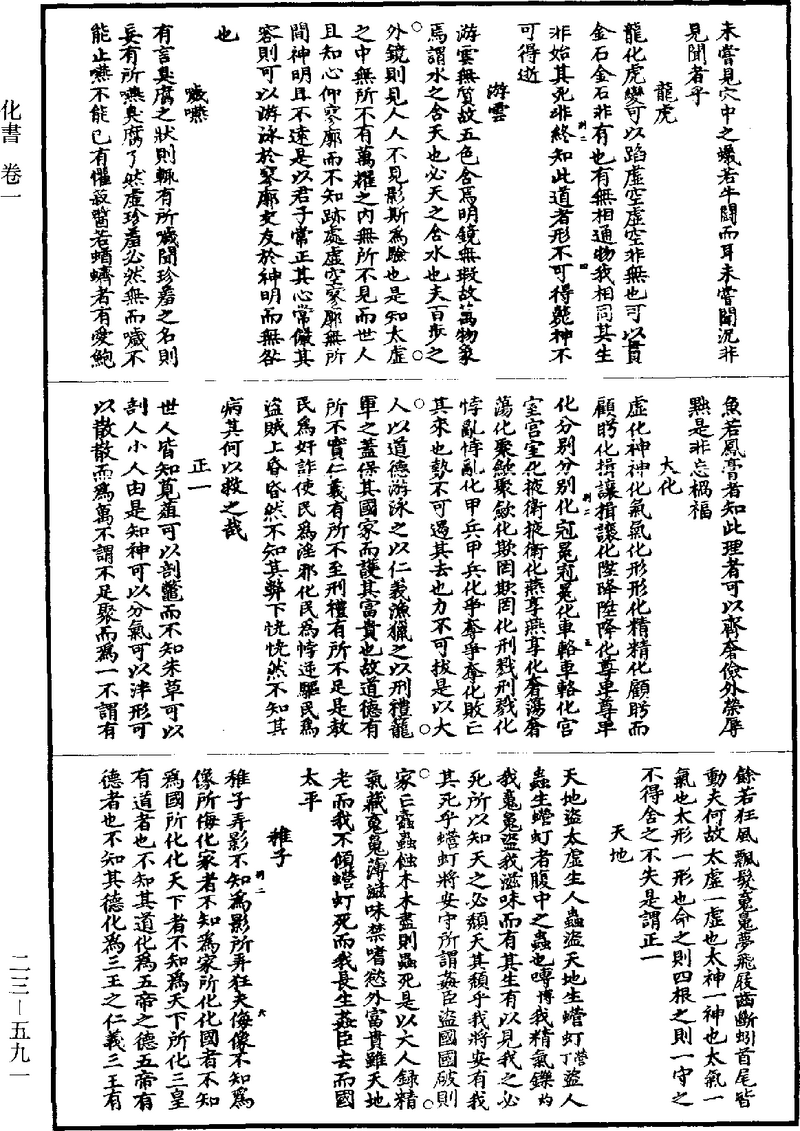 化書　卷一
未嘗見穴中之蟻若牛鬭而耳未嘗聞況非
見聞者乎
龍虎
龍化虎變可以蹈虛空虛空非無也可以貫
金石金石非有也有無相通物我相同其生
非始其死非終知此道者形不可得斃神不
可得逝
游雲
游雲無質故五色含焉明鏡無瑕故萬物象
焉謂水之含天也必天之含水也夫百步之
外鏡則見人人不見影斯為驗也是知太虛
之中無所不有萬耀之內無所不見而世人
且知心仰寥廓而不知跡處虛空寥廓無所
間神明且不遠是以君子常正其心常儼其
容則可以游泳於寥廓交友於神明而無咎
也
噦嚥
有言臭腐之狀則輒有所噦聞珍羞之名則
妄有所嚥臭腐了然虛珍羞必然無而噦不
能止嚥不能已有懼菽醬若蝤蠐者有愛鮑
魚若鳳膏者知此理者可以齊奢儉外榮辱
黜是非忘禍福
大化
虛化神神化氣氣化形形化精精化顧眄而
顧眄化揖讓揖讓化陞降陞降化尊卑尊卑
化分別分別化冠冕冠冕化車輅車輅化宮
室宮室化掖衛掖衛化燕享燕享化奢蕩奢
蕩化聚斂聚斂化欺罔欺罔化刑戮刑戮化
悖亂悖亂化甲兵甲兵化爭奪爭奪化敗亡
其來也勢不可遏其去也力不可拔是以大
人以道德游泳之以仁義漁獵之以刑禮籠
罩之蓋保其國家而護其富貴也故道德有
所不實仁義有所不至刑禮有所不足是教
民為奸詐使民為淫邪化民為悖逆驅民為
盜賊上昏昏然不知其弊下恍恍然不知其
病其何以救之哉
正一
世人皆知莧𧆐可以剖鼈而不知朱草可以
剖人小人由是知神可以分氣可以泮形可
以散散而為萬不謂不足聚而為一不謂有
餘若狂風飄髮魂魄夢飛屐齒斷蚓首尾皆
動夫何故太虛一虛也太神一神也太氣一
氣也太形一形也命之則四根之則一守之
不得舍之不失是謂正一
天地
天地盜太虛生人蟲盜天地生蟾虰盜人
蟲生蟾虰者腹中之蟲也嚩我精氣鑠
我魂魄盜我滋味而有其生有以見我之必
死所以知天之必頹天其頹乎我將安有我
其死乎蟾虰將安守所謂姦臣盜國國破則
家亡蠹蟲蝕木木盡則蟲死是以大人錄精
氣藏魂魄薄滋味禁嗜慾外富貴雖天地
老而我不傾蟾虰死而我長生姦臣去而國
太平
稚子
稚子弄影不知為影所弄狂夫侮像不知為
像所侮化家者不知為家所化化國者不知
為國所化化天下者不知為天下所化三皇
有道者也不知其道化為五帝之德五帝有
德者也不知其德化為三王之仁義三王有
二三—五九一